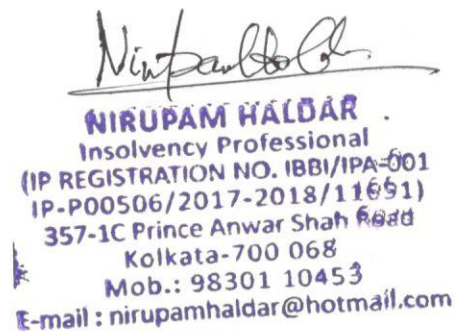 NIRUPAM HALDAR .
Insolvency Professional
(IP REGISTRATION NO. IBBI/IPA-001
IP-P00506/2017-2018/11691)
357-1C Prince Anwar Shah Road
Kolkata-700 068
Mob.: 98301 10453
E-mail : nirupamhaldar@hotmail.com